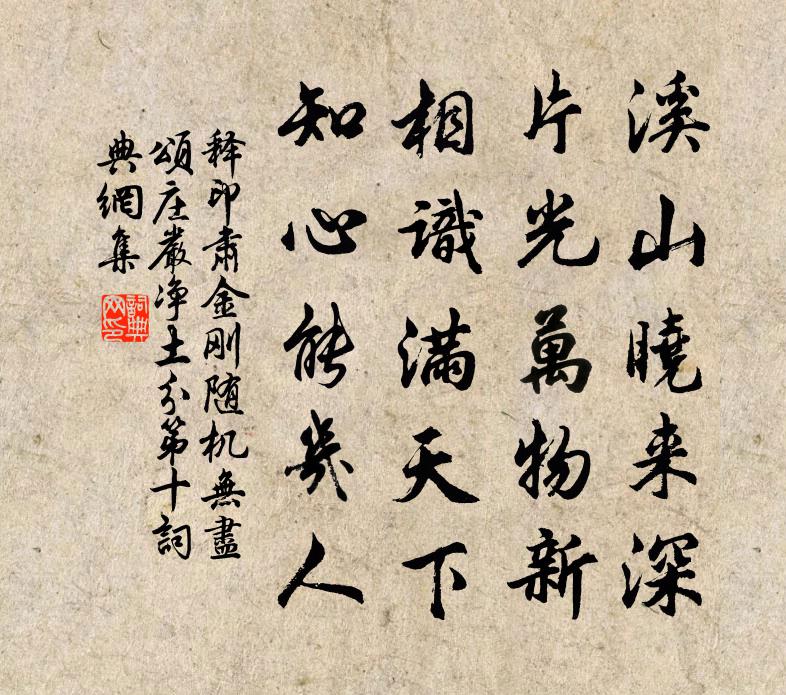 溪山曉来深
片光萬物新
相識滿天下
知心能幾人
释印肅金刚随机無盡
頌庄嚴净土分第十詞
典網集
詞典網印